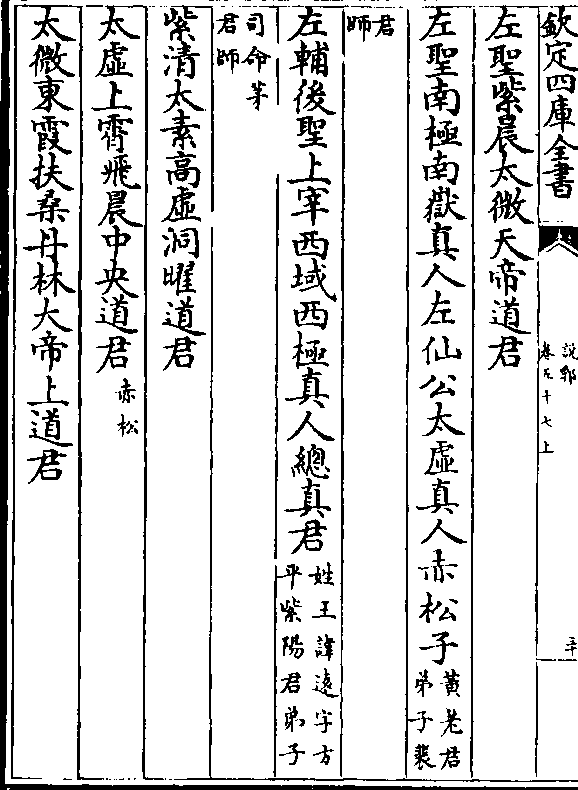 欽定四庫全書
說郛
卷五十七上
左聖紫晨太微天帝道君
左聖南極南嶽真人左仙公太虛真人赤松子黃老君弟子裴
君師
左輔後聖上宰西域西極真人總真君姓王諱遠字方平紫陽君弟子
司命茅君師
紫清太素高虛洞曜道君
太虛上霄飛晨中央道君赤松
太微東霞扶桑丹林大帝上道君